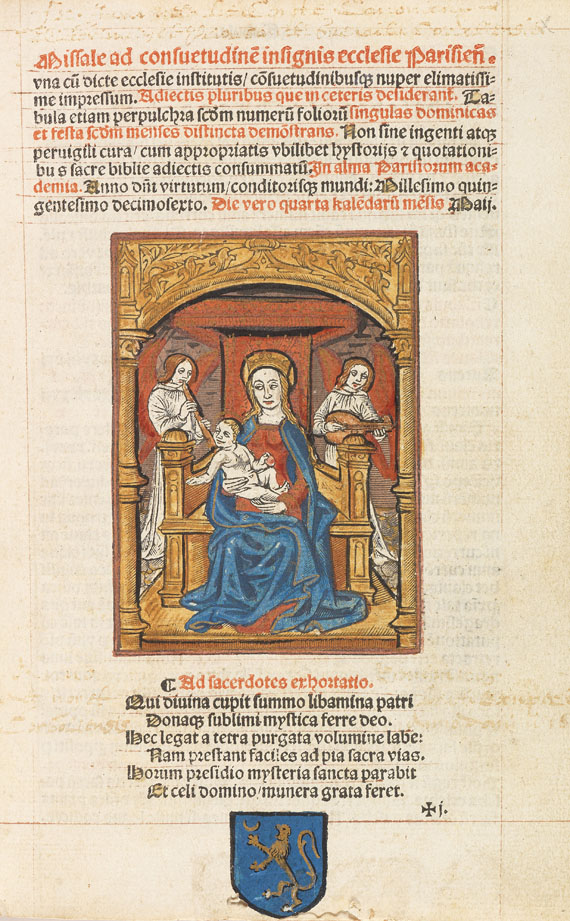 Missale ad consuetudinē insignis ecclesie Parisieñ.
vna cū dicte ecclesie institutis/ cōsuetudinibusqȝ nuper elimatissi-
me impressum. Adiectis pluribus que in ceteris desiderant̄. Ta-
bula etiam perpulchra scd̄m numerū foliorū singulas dominicas
et festa scd̄m menses distincta demōstrans. Non sine ingenti atqȝ
peruigili cura/ cum appropriatis vbilibet hystorijs ⁊ quotationi-
bus sacre biblie adiectis consummatū. In alma Parisiorum aca-
demia. Anno dn̄i virtutum/ conditorisqȝ mundi: Millesimo quin-
gentesimo decimosexto. Die vero quarta kalēdarū mēsis Maij.
¶ Ad sacerdotes exhortatio.
Qui diuina cupit summo libamina patri
Donaqȝ sublimi mystica ferre deo.
Hec legat a tetra purgata volumine labe:
Nam prestant faciles ad pia sacra vias.
Horum presidio mysteria sancta parabit
Et celi domino/ munera grata feret.
✠ j.